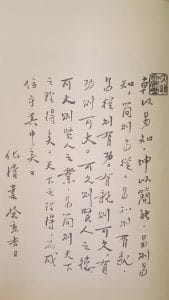 乾以易知，坤以簡能，易則易
知，簡則易從。易知則有親，
易從則有功。有親則可久，有
功則可大。可久則賢人之德，
可大則賢人之業。易簡則天下
之理得矣。天下之理得，而成
位乎其中矣。
癸亥吉日